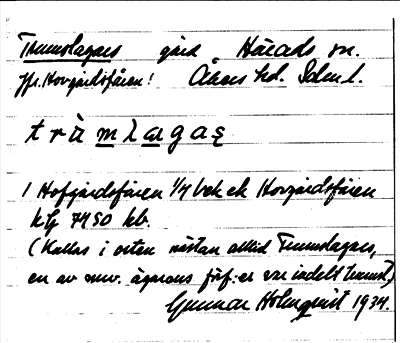 Trumslagars gård Härads sn.
jfr. Hovgårdsfåren! Åkers hd. Södml.
t r ù m l a g a ş
1 Hofgårdsfåren 1/4 bek ek Hovgårdsfåren
kG 7450 kb.
(Kallas i orten nästan alltid Trumslagars,
en av nuv. ägarens förf:er var indelt trumsl.)
Gunnar Holmqvist 1934.